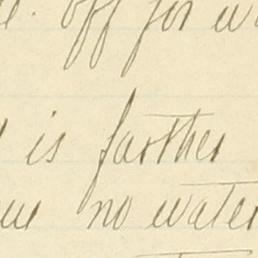 off for
is farther
no water